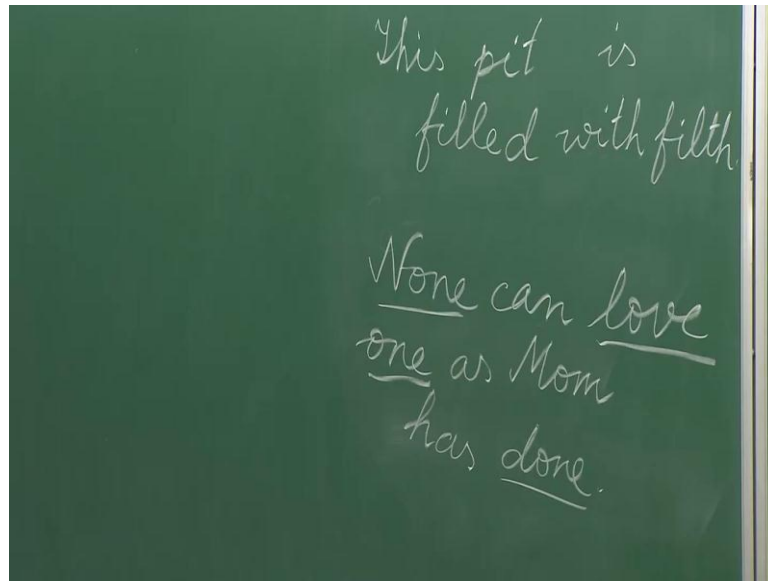 This pit is
filled with filth.
None can love
one as Mom
has done.